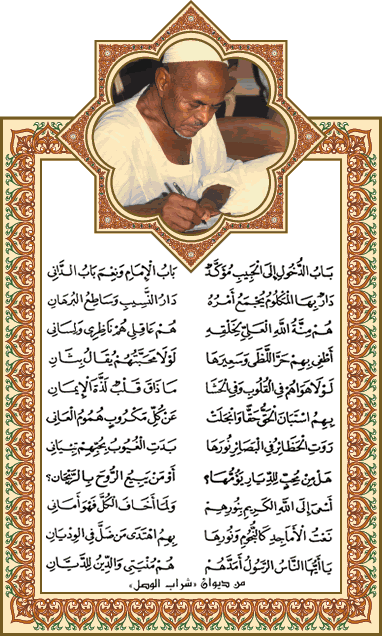 بَابُ الدُّخُولِ إِلَى الْحَبِيبِ مُؤَكَّدٌ بَابُ الْإِمَامِ وَنِعْمَ بَابُ الدَّانِي
دَارٌ بِهَا الْمَكْلُومُ يُجْمَعُ أَمْرُهُ دَارُ النَّسِيبِ وَسَاطِعُ الْبُرْهَانِ
هُمْ مِنَّةُ اللَّهِ الْعَلِيِّ بِخَلْقِهِ هُمْ عَاقِلِي هُمْ نَاظِرِي وَلِسَانِي
أُطْفِي بِهِمْ حَرَّ اللَّظَى وَسَعِيرَهَا لَوْلَا مَحَبَّتُهُمْ يُقَالُ بِثَانِ
لَوْلَا هَوَاهُمْ فِي الْقُلُوبِ وَفِي الْحَشَا مَا ذَاقَ قَلْبٌ لَذَّةَ الْإِيمَانِ
بِهِمُ اسْتَبَانَ الْحَقُّ حَقًّا وَانْجَلَتْ عَنْ كُلِّ مَكْرُوبٍ هُمُومُ الْعَانِي
رَوَتِ الْحَظَائِرُ فِي الْبَصَائِرِ نُورَهَا بَدَتِ الْغُيُوبُ بِحُبِّهِمْ تِبْيَانِي
هَلْ مِنْ مُحِبٍّ لِلدِّيَارِ يَؤُمُّهَا؟ أَوْ مَنْ يَبِيعُ الرُّوحَ بِالرَّيْحَانِ؟
أَسْمَى إِلَى اللَّهِ الْكَرِيمِ بِنُورِهِمْ وَلَمَا أَخَافُ الْكُلَّ فَهْوَ أَمَانِي
نَعْتُ الْأَمَاجِدِ كَالنُّجُومِ وَنُورِهَا بِهِمُ اهْتَدَى مَنْ ضَلَّ فِي الْوِدْيَانِ
يَا أَيُّهَا النَّاسُ الرَّسُولُ أَمَدَّهُمْ هُمْ مُنْيَتِي وَالدِّينُ لِلدَّيَّانِ
من ديوان «شراب الوصل»